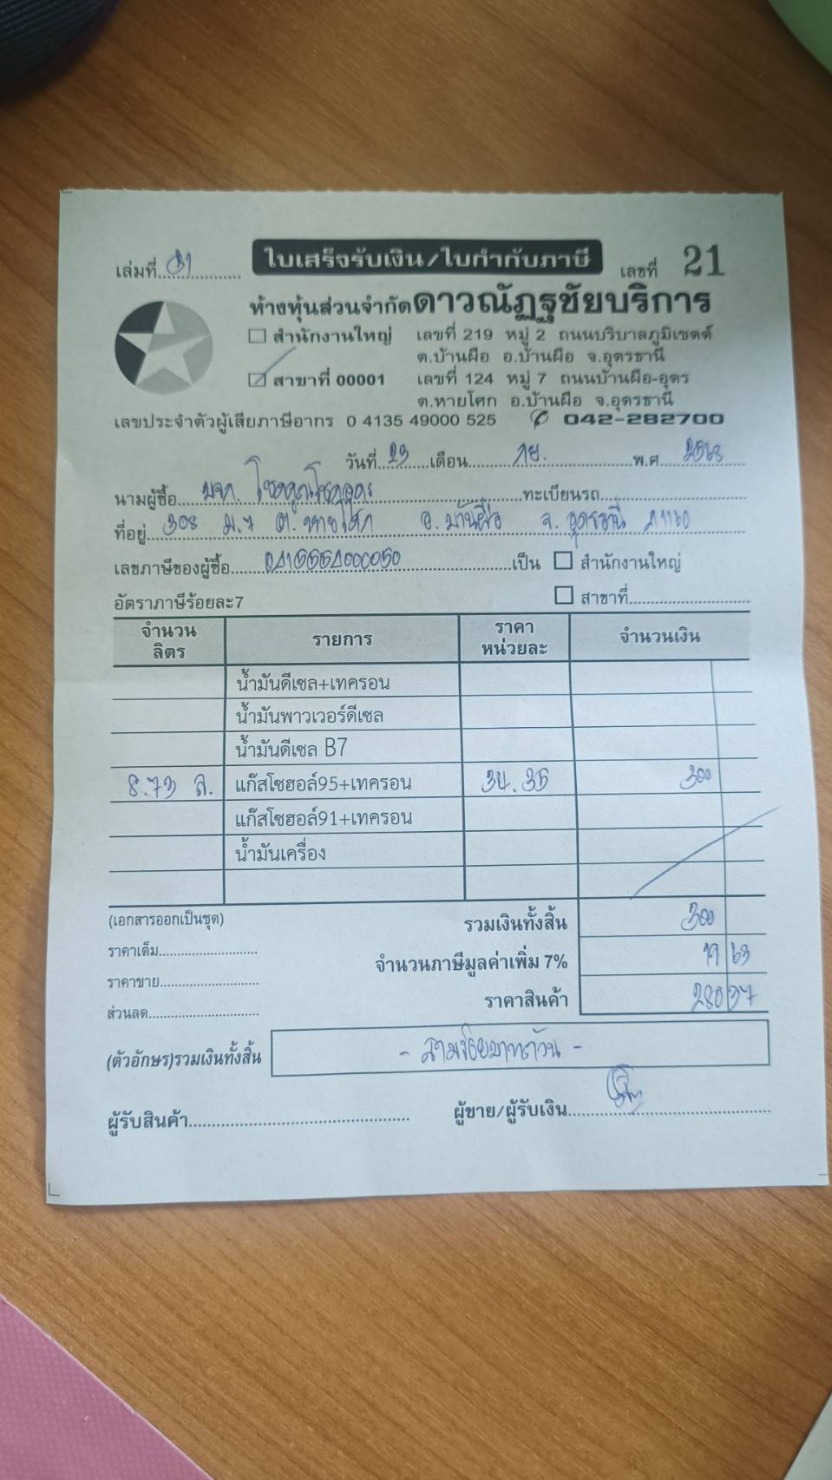 เล่มที่ 01 ใบเสร็จรับเงิน/ใบกำกับภาษี เลขที่ 21
ห้างหุ้นส่วนจำกัดดาวณัฏฐชัยบริการ
สำนักงานใหญ่ เลขที่ 219 หมู่ 2 ถนนบริบาลภูมิเขตต์
ต.บ้านผือ อ.บ้านผือ จ.อุดรธานี
สาขาที่ 00001 เลขที่ 124 หมู่ 7 ถนนบ้านผือ-อุดร
ต.หายโศก อ.บ้านผือ จ.อุดรธานี
เลขประจำตัวผู้เสียภาษีอากร 0 4135 49000 525 042-282700
วันที่ 23 เดือน พ.ศ 2568
นามผู้ซื้อ ทะเบียนรถ
ที่อยู่ 308 ม.7 ต.หายโศก อ.บ้านผือ จ.อุดรธานี 41160
เลขภาษีของผู้ซื้อ เป็น สำนักงานใหญ่
อัตราภาษีร้อยละ7 สาขาที่
จำนวน ลิตร รายการ ราคา หน่วยละ จำนวนเงิน
น้ำมันดีเซล+เทครอน
น้ำมันพาวเวอร์ดีเซล
น้ำมันดีเซล B7
8.73 ล. แก๊สโซฮอล์95+เทครอน 34.35 300
แก๊สโซฮอล์91+เทครอน
น้ำมันเครื่อง
(เอกสารออกเป็นชุด) รวมเงินทั้งสิ้น 300
ราคาเต็ม
จำนวนภาษีมูลค่าเพิ่ม 7% 19 63
ราคาขาย
ราคาสินค้า 280 37
ส่วนลด
(ตัวอักษร)รวมเงินทั้งสิ้น - สามร้อยบาทถ้วน -
ผู้รับสินค้า ผู้ขาย/ผู้รับเงิน